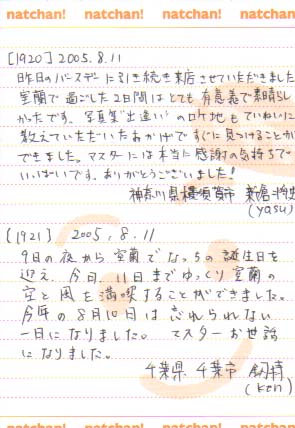 natchan! natchan! natchan! natchan!
[1920] 2005.8.11
昨日のバースデーに引き続き来店させていただきました
室蘭で過ごした2日間はとても有意義で素晴らし
かったです。写真集"出逢い"のロケ地もていねいに
教えていただいたおかげですぐに見つけることが
できました。マスターには本当に感謝の気持ちで
いっぱいです。ありがとうございました!
神奈川県横須賀市
(yasu)
[1921] 2005.8.11
9日の夜から室蘭でなっちの誕生日を
迎え、今日、11日までゆっくり室蘭の
空と風を満喫することができました。
今年の8月10日は忘れられない
一日になりました。 マスターお世話
になりました。
千葉県 千葉市
(Ken)
natchan! natchan! natchan! natchan!